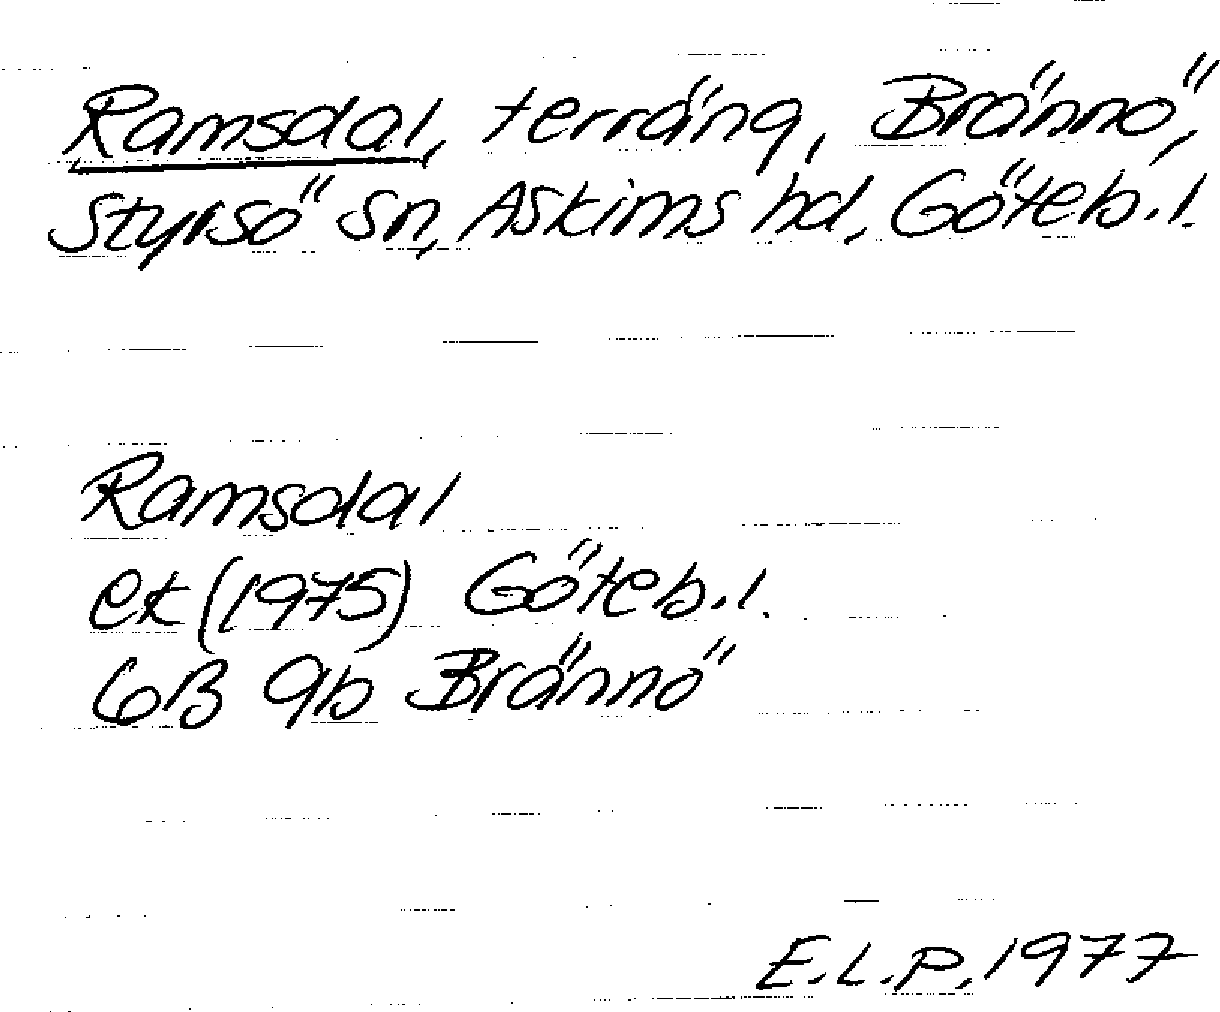 Ramsdal, terräng, Brännö,
Styrsö sn, Askims hd, Göteb.l.
Ramsdal
ek (1975) Göteb.l.
6B 9b Brännö
E.L.P. 1977